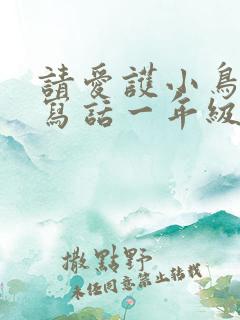 請愛護小鳥
寫話一年級
撒點野
未經同意禁止轉載